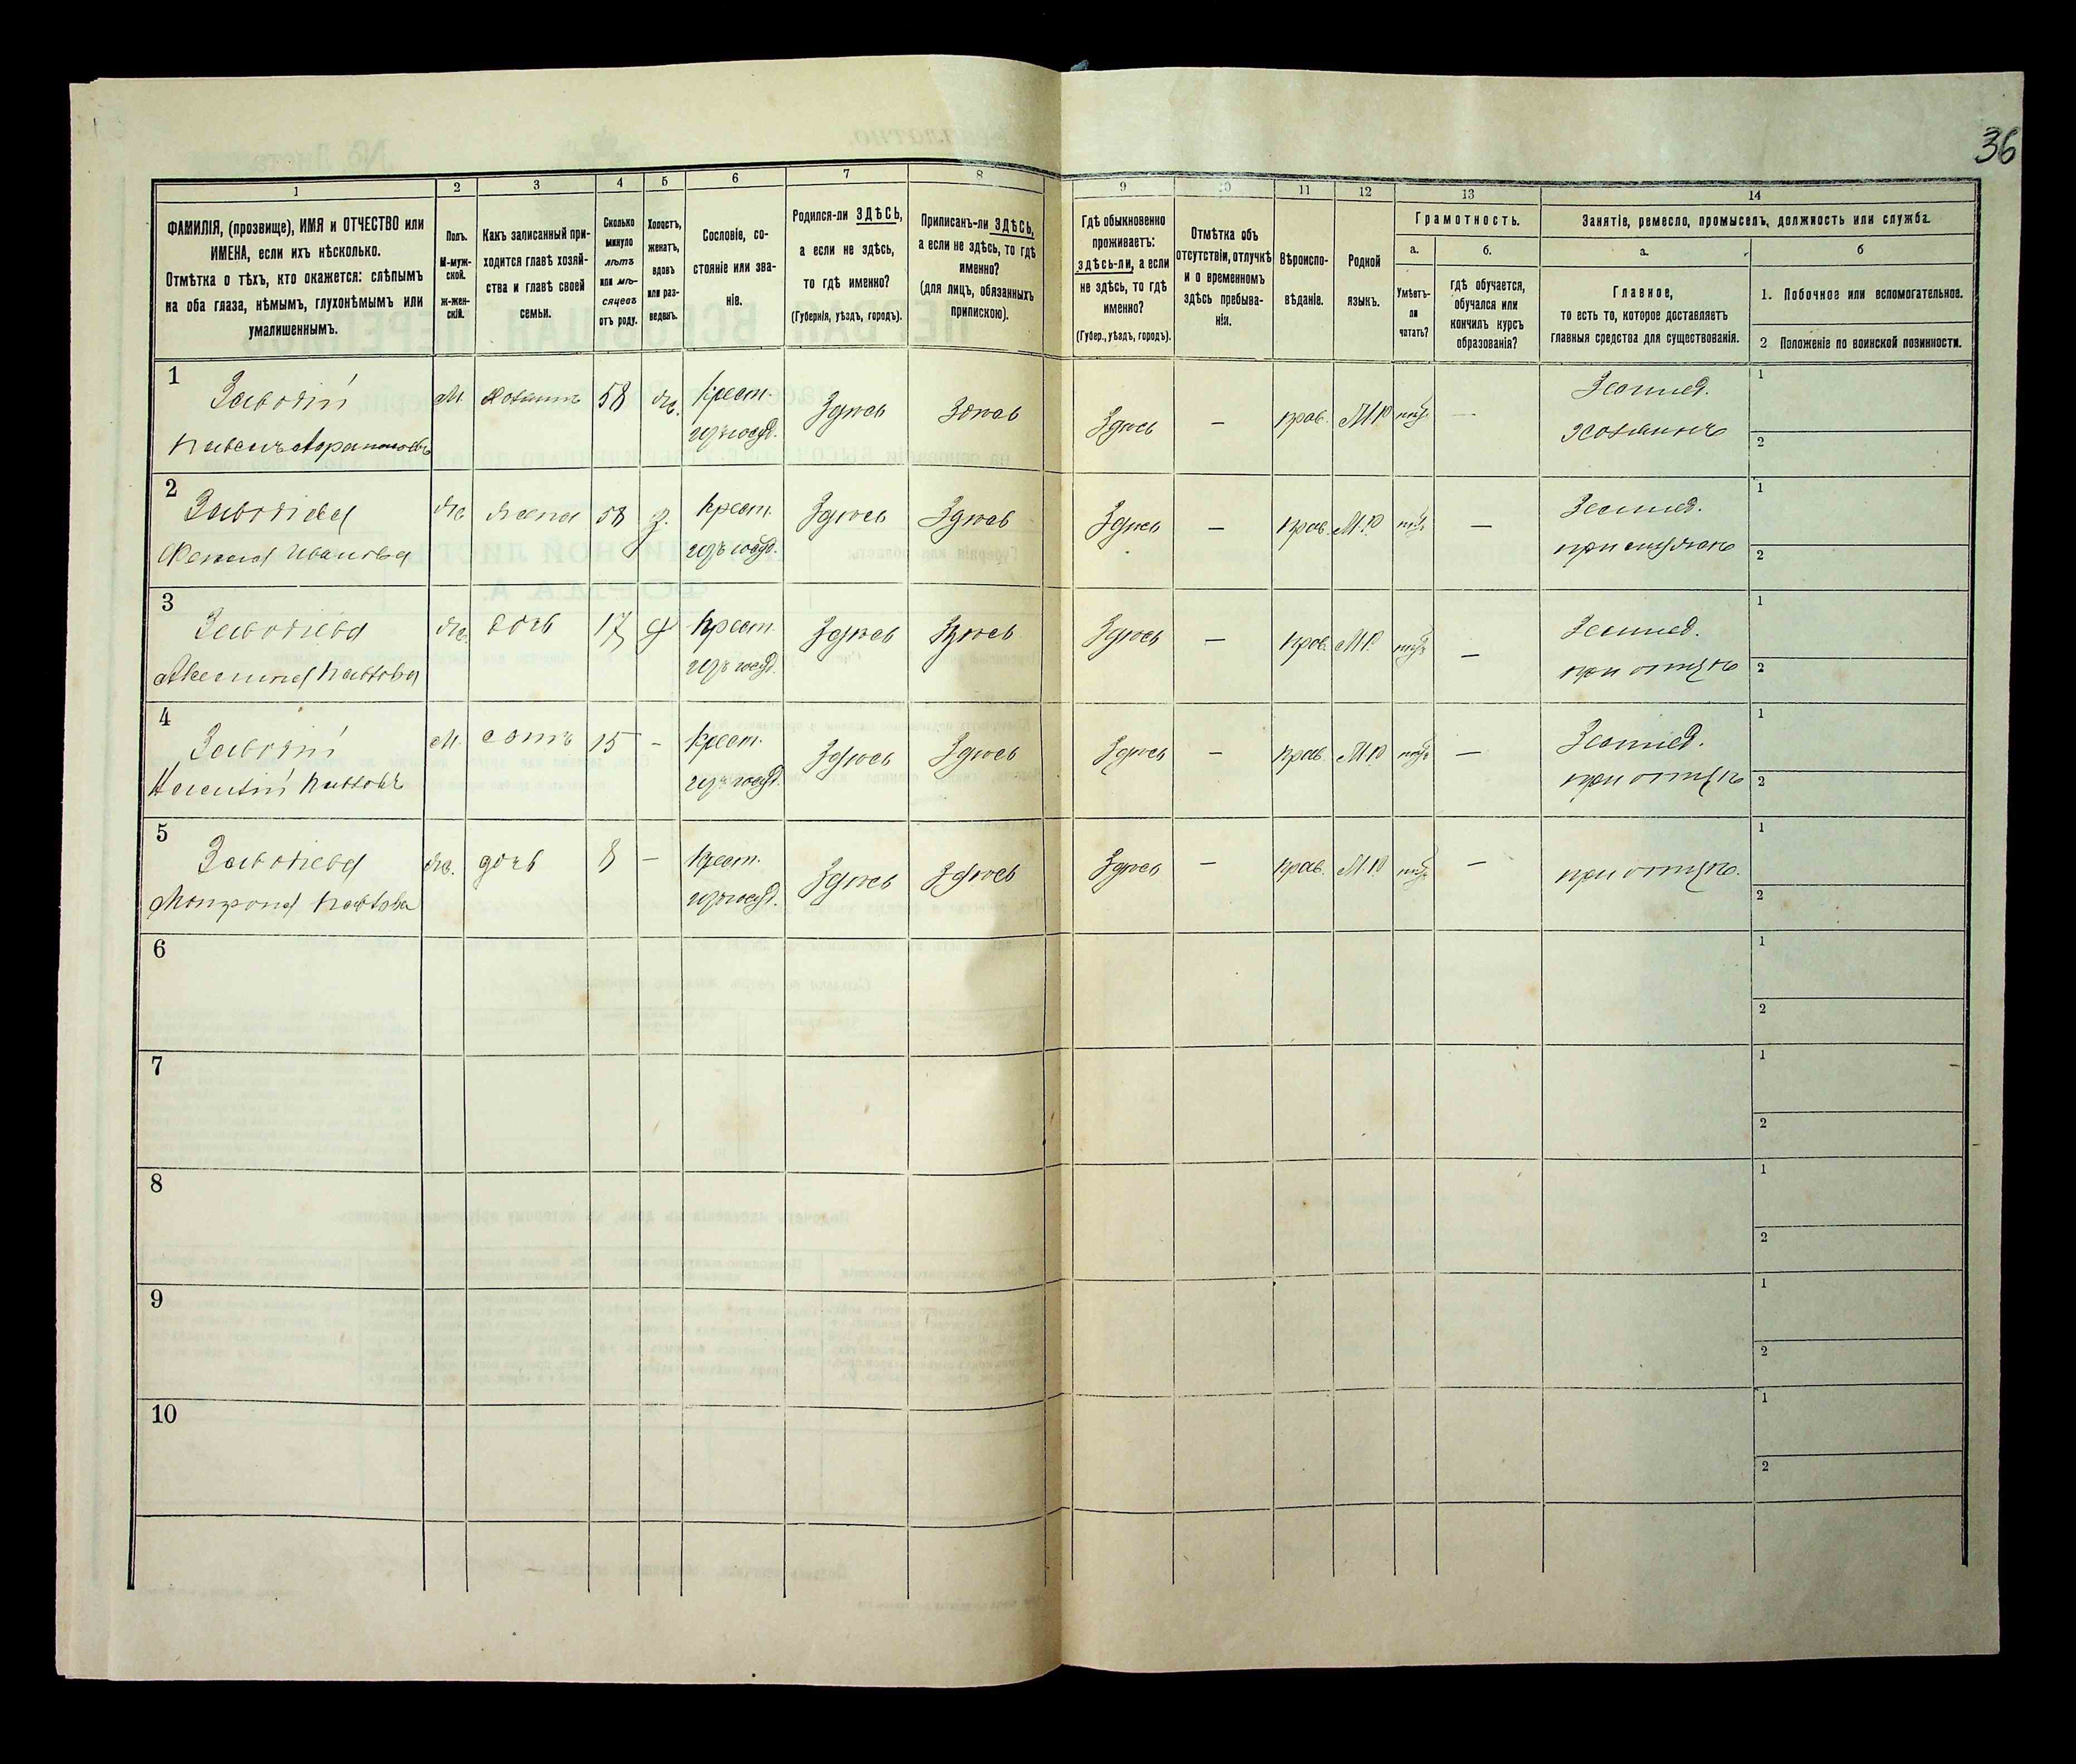 36
1
2
3
4
5
6
7
8
9
10
11
12
13
14
ФАМИЛІЯ, (прозвище), ИМЯ и ОТЧЕСТВО или
ИМЕНА, если ихъ нѣсколько.
Отмѣтка о тѣхъ, кто окажется: слѣпымъ
на оба глаза, нѣмымъ, глухонѣмымъ или
умалишеннымъ.
Полъ.
М-муж-
ской.
Ж-жен-
скій.
Какъ записанный при-
ходится главѣ хозяй-
ства и главѣ своей
семьи.
Сколько
минуло
лѣтъ
или мѣ-
сяцевъ
отъ роду.
Холостъ,
женатъ,
вдовъ
или раз-
веденъ.
Сословіе, со-
стояніе или зва-
ніе.
Родился-ли ЗДѢСЬ,
а если не здѣсь,
то гдѣ именно?
(Губернія, уѣздъ, городъ).
Приписанъ-ли ЗДѢСЬ,
а если не здѣсь, то гдѣ
именно?
(для лицъ, обязанныхъ
припискою).
Гдѣ обыкновенно
проживаетъ:
здѣсь-ли, а если
не здѣсь, то гдѣ
именно?
(Губер., уѣздъ, городъ).
Отмѣтка объ
отсутствіи, отлучкѣ
и о временномъ
здѣсь пребыва-
ніи.
Вѣроиспо-
вѣданіе.
Родной
языкъ.
Грамотность.
а.
Умѣетъ-
ли
читать?
б.
гдѣ обучается,
обучался или
кончилъ курсъ
образованія?
Занятіе, ремесло, промыселъ, должность или служба.
а.
Главное,
то есть то, которое доставляетъ
главныя средства для существованія.
б
1. Побочное или вспомогательное.
2 Положеніе по воинской повинности.
1
М
хозяинъ
58
ж.
Крест.
изъ госуд.
Здѣсь
Здѣсь
Здѣсь
—
прав.
М.Р
—
Землед.
хозяинъ
1
2
2
Ивановна
ж
жена
58
з.
Крест.
изъ госуд.
Здѣсь
Здѣсь
Здѣсь
—
прав.
М.Р
—
Землед.
при мужѣ
1
2
3
ж.
дочь
17
Крест.
изъ госуд.
Здѣсь
Здѣсь
Здѣсь
—
прав.
М.Р.
—
Землед.
при отцѣ
1
2
4
М.
сынъ
15
-
Крест.
изъ госуд.
Здѣсь
Здѣсь
Здѣсь
—
прав.
М.Р
—
Землед.
при отцѣ
1
2
5
ж.
дочь
8
—
Крест.
изъ госуд.
Здѣсь
Здѣсь
Здѣсь
—
прав.
М.Р
—
при отцѣ.
1
2
6
1
2
7
1
2
8
1
2
9
1
2
10
1
2